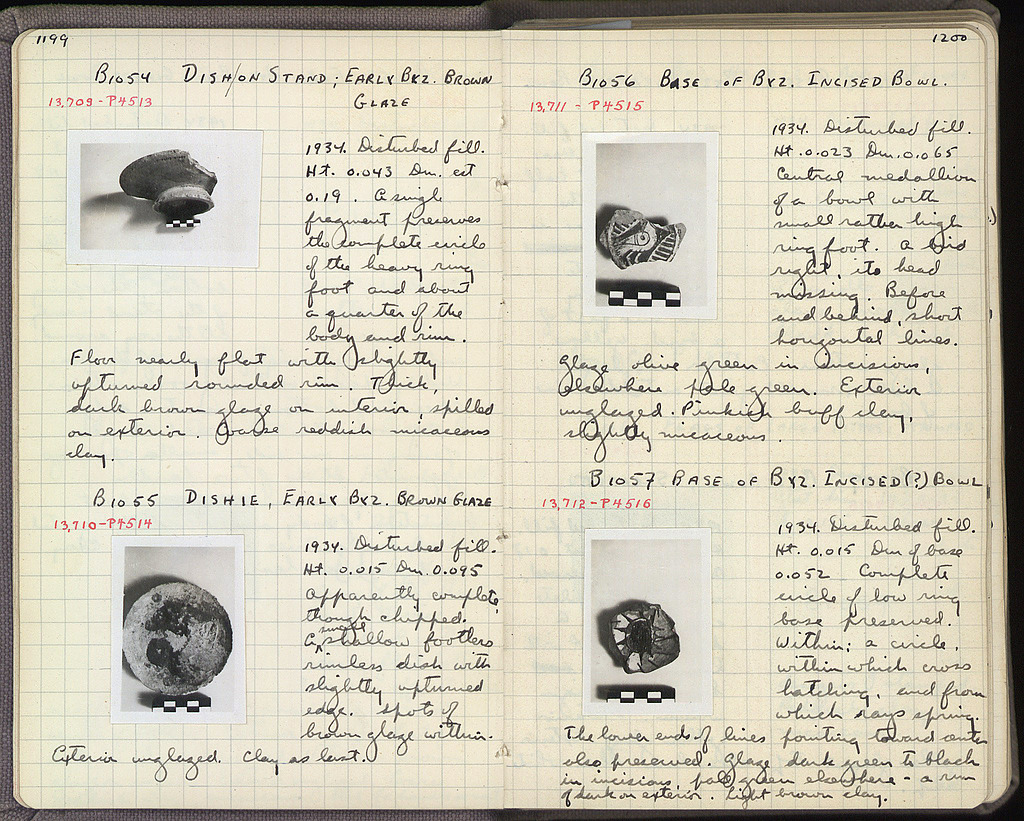 1199
B1054 DISH/ON STAND; EARLY BYZ. BROWN
GLAZE
13,709-P4513
1934. Disturbed fill.
Ht. 0.043 Dm. est
0.19. A single
fragment preserves
the complete circle
of the heavy ring
foot and about
a quarter of the
body and rim.
Floor nearly flat with slightly
upturned rounded rim. Thick,
dark brown glaze on interior, spilled
on exterior. Coarse reddish micaceous
clay.
B1055 DISHIE, EARLY BYZ. BROWN GLAZE
13,710-P4514
1934. Disturbed fill.
Ht. 0.015 Dm. 0.095
Apparently complete
though chipped.
A small shallow footless
rimless dish with
slightly upturned
edge. Spots of
brown glaze within.
Exterior unglazed. Clay as last.
1200
B1056 BASE OF BYZ. INCISED BOWL.
13,711 - P4515
1934. Disturbed fill.
Ht. 0.023 Dm. 0.065
Central medallion
of a bowl with
small rather high
ring foot. A bird
right, its head
missing. Before
and behind, short
horizontal lines.
Glaze olive green in incisions,
elsewhere pale green. Exterior
unglazed. Pinkish buff clay,
slightly micaceous.
B1057 BASE OF BYZ. INCISED(?) BOWL
13,712-P4516
1934. Disturbed fill.
Ht. 0.015 Dm of base
0.052 Complete
circle of low ring
base preserved.
Within: a circle,
within which cross
hatching, and from
which rays spring.
The lower ends of lines pointing toward center
also preserved. Glaze dark green to black
in incisions, pale green elsewhere - a run
of dark on exterior. Light brown clay.